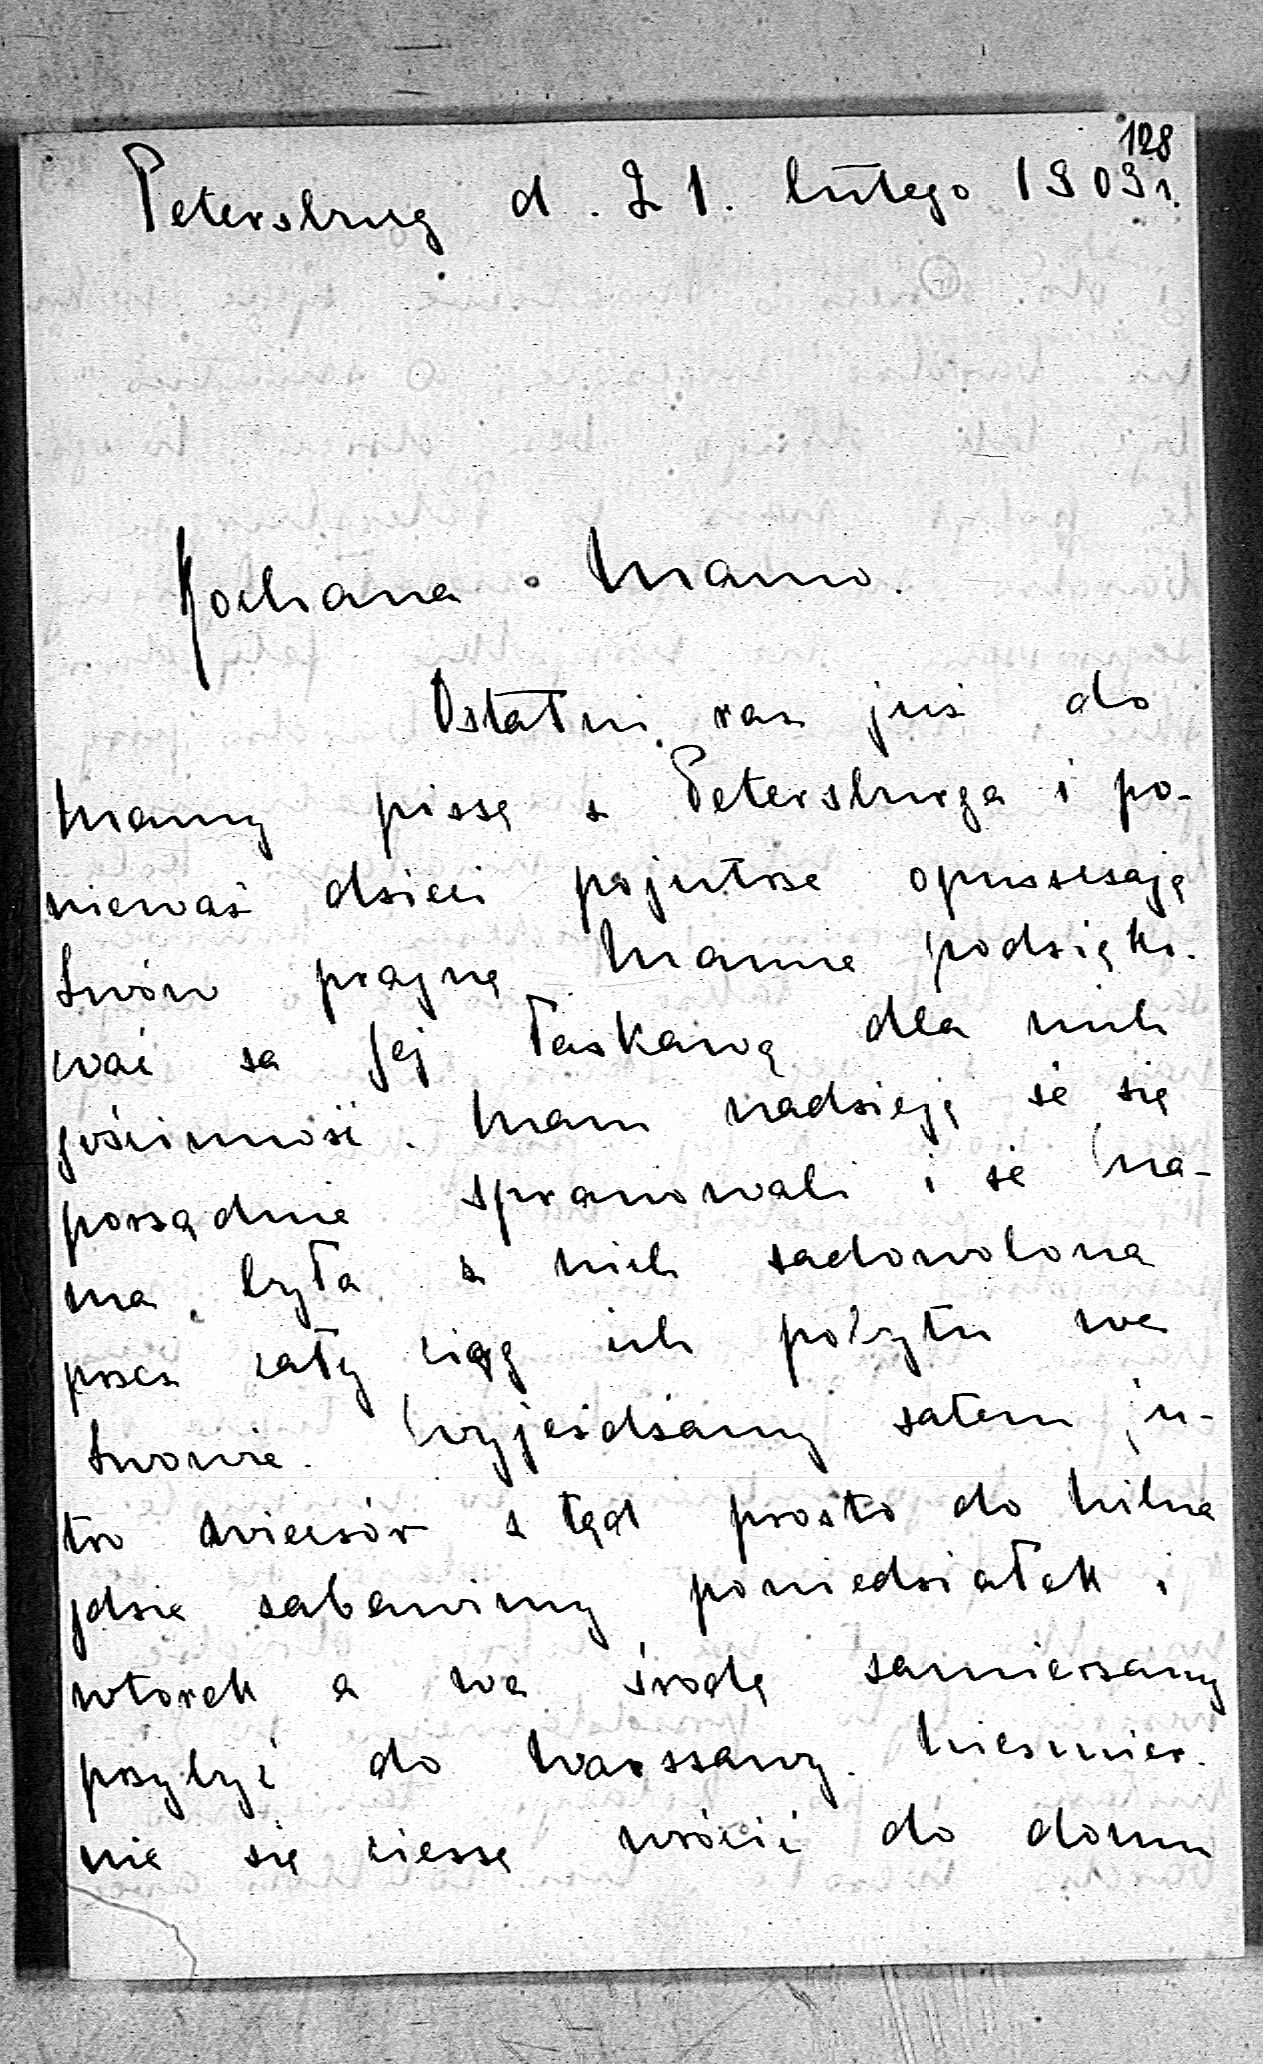 128
Petersburg d. 21. lutego 1909 r.
Kochana Mamo.
Ostatni raz już do
Mamy piszę z Petersburga i po-
nieważ dzieci pojutrze opuszczają
Lwów pragnę Mamie podzięko-
wać za Jej łaskawą dla nich
gościnność. Mam nadzieję że się
porządnie sprawowali i że Ma-
ma była z nich zadowolona
przez cały ciąg ich pobytu we
Lwowie. Wyjeżdżamy zatem ju-
tro wieczór z tąd prosto do Wilna
gdzie zabawimy poniedziałek i
wtorek a we środę zamierzamy
przybyć do Warszawy. Niezmier-
nie się cieszę wrócić do domu